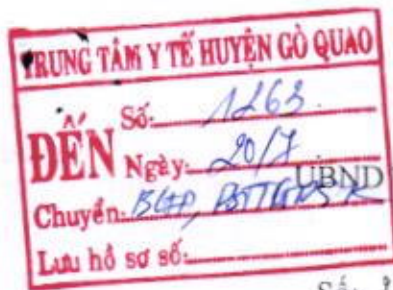 TRUNG TÂM Y TẾ HUYỆN GÒ QUAO
ĐẾN
Số: 1263.
Ngày: 20/7
UBND
Chuyển: BGĐ,
Lưu hồ sơ số:
Số: